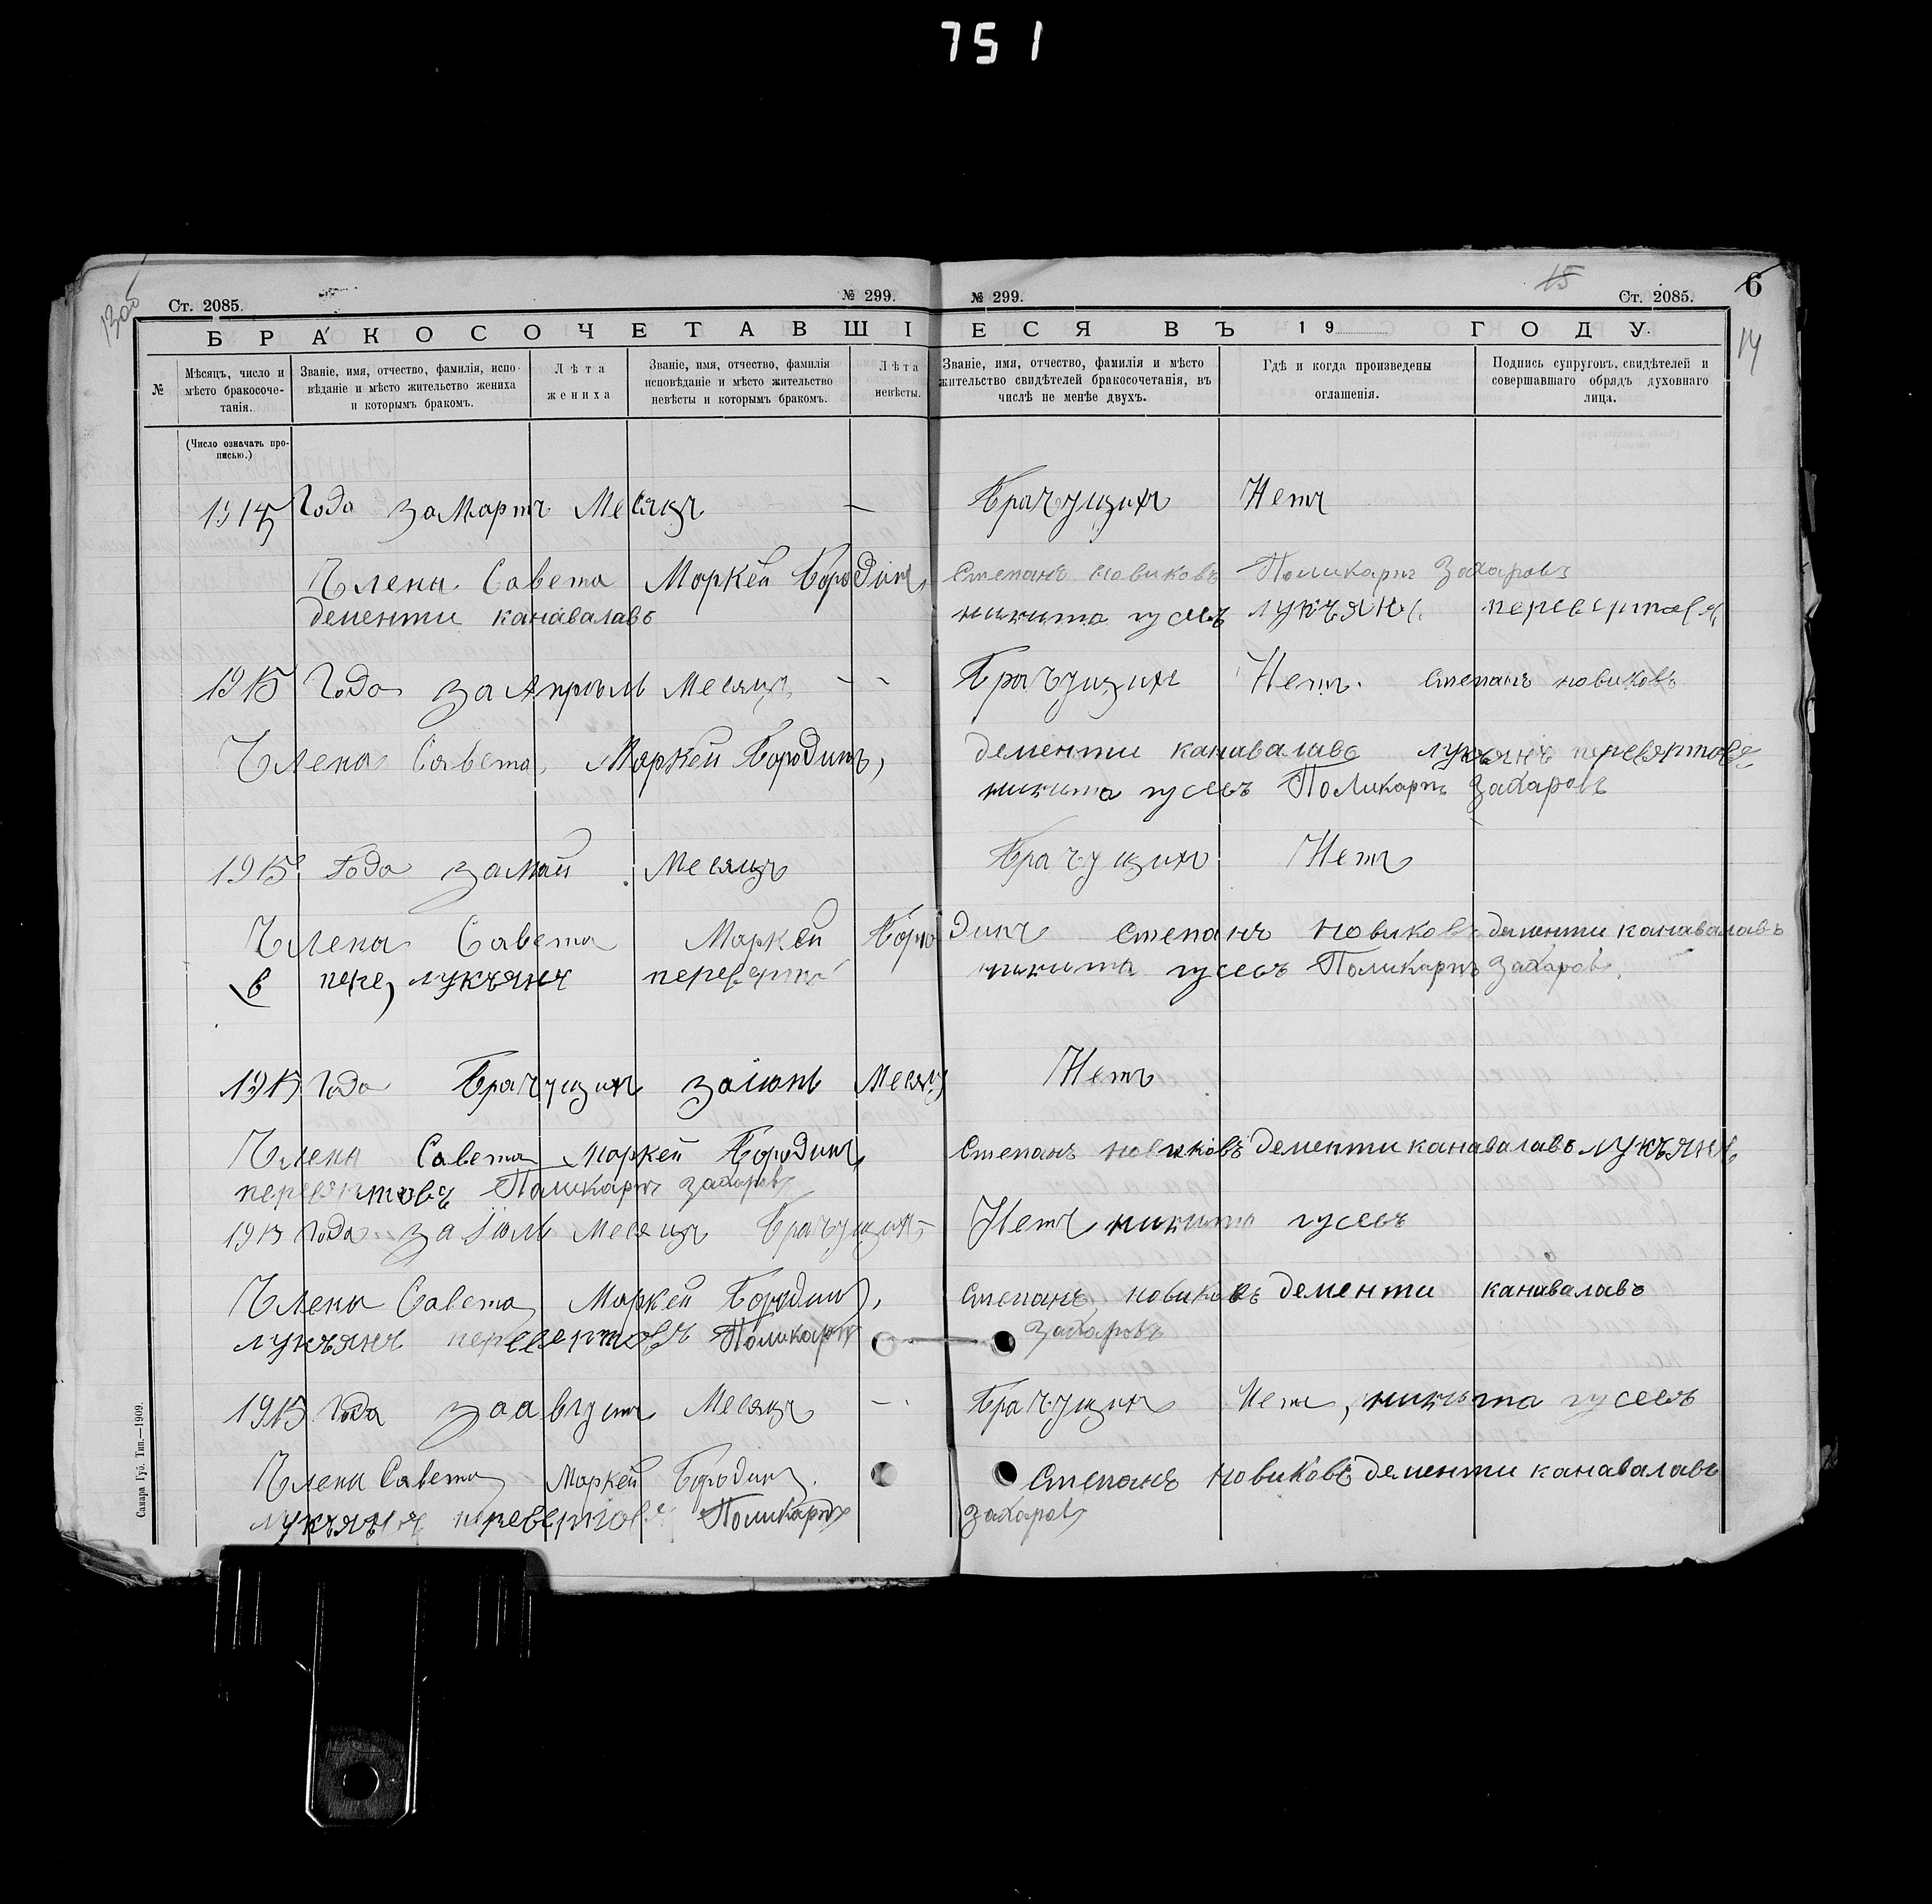 751
Ст. 2085. № 299. № 299. 15 Ст. 2085. 6
14
БРАКОСОЧЕТАВШІЕСЯ ВЪ 19 ГОДУ.
№
Мѣсяцъ, число и мѣсто бракосоче-
танія.
Званіе, имя, отчество, фамилія, испо-
вѣданіе и мѣсто жительство жениха
и которымъ бракомъ.
Лѣта
жениха
Званіе, имя, отчество, фамилія
исповѣданіе и мѣсто жительство
невѣсты и которымъ бракомъ.
Лѣта
невѣсты.
Званіе, имя, отчество, фамилія и мѣсто
жительство свидѣтелей бракосочетанія, въ
числѣ не менѣе двухъ.
Гдѣ и когда произведены
оглашенія.
Подпись супруговъ, свидѣтелей и
совершавшаго обрядъ духовнаго
лица.
(Число означать про-
писью.)
1915 Года за Мартъ Месяцъ — Брачущихъ Нетъ
Члена Савета Маркей Бородинъ, Степанъ новиковъ Поликарпъ Захаровъ
дементи канавалавъ никита гусевъ лукъянъ
1915 Года за Апрѣль Месяцъ - - Брачущихъ Нетъ. Степанъ новиковъ
Члена Савета, Маркей Бородинъ, дементи канавалавъ лукъянъ перевертовъ
никита гусевъ Поликарпъ Захаровъ
1915 Года за май Месяцъ Брачущихъ Нетъ
Члена Савета Маркей Бородинъ Степанъ новиковъ дементи канавалавъ
лукъянъ никита гусевъ Поликарпъ Захаровъ,
1915 Года Брачущихъ за июнь Месяцъ Нетъ
Члена Савета Маркей Бородинъ, Степанъ новиковъ дементи канавалавъ лукъянъ
перевертовъ Поликарпъ захаровъ
1915 Года за Июль Месяцъ Брачущихъ Нетъ никита гусевъ
Члена Савета, Маркей Бородинъ, Степанъ, новиковъ дементи канавалавъ
лукъянъ перевертовъ Поликарпъ Захаровъ
1915 Года за августъ Месяцъ — Брачущихъ Нетъ, никита гусевъ
Члена Савета, Маркей Бородинъ. Степанъ новиковъ дементи канавалавъ
лукъянъ перевертовъ Поликарпъ захаровъ
Самара Губ. Тип.—1909.